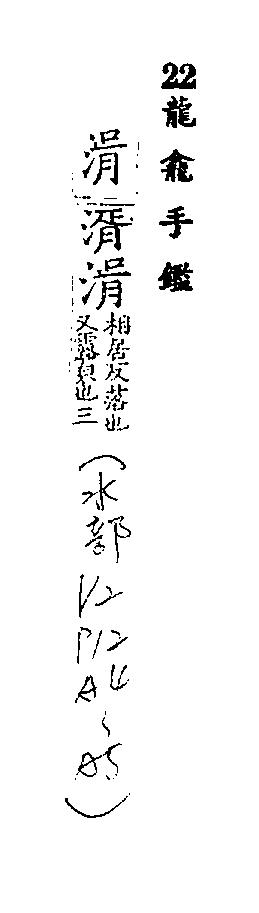 22龍龕手鑑
湑湑湑
相居反落也
又露皃也三
(水部
V2
P12
A4
、
A5)